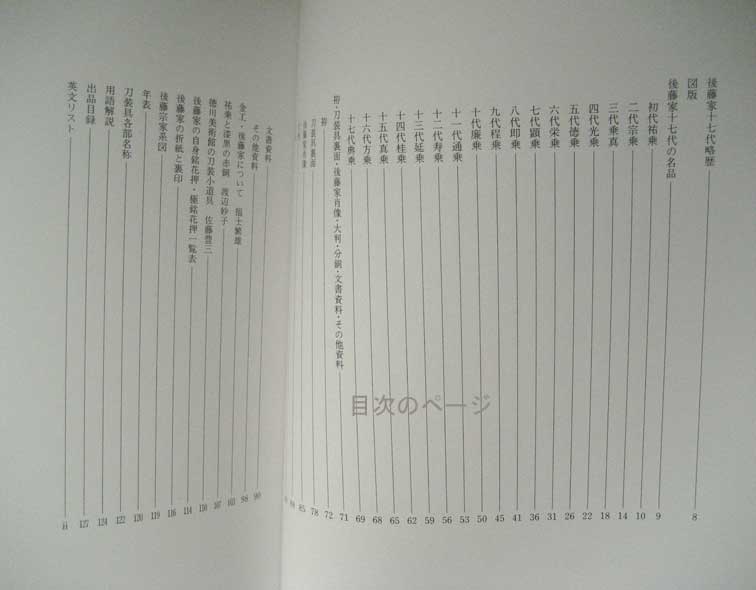 後藤家十七代略歴 8
図版
後藤家十七代の名品 9
初代祐乗 10
二代宗乗 14
三代乗真 18
四代光乗 22
五代徳乗 26
六代栄乗 31
七代顕乗 36
八代即乗 41
九代程乗 45
十代廉乗 50
十一代通乗 53
十二代寿乗 56
十三代延乗 59
十四代桂乗 62
十五代真乗 65
十六代方乗 68
十七代典乗 69
拵・刀装具裏面・後藤家肖像・大判・分銅・文書資料・その他資料 71
拵 72
刀装具裏面 78
後藤家肖像 85
文書資料
その他資料 98
金工・後藤家について 福士繁雄 103
祐乗と漆黒の赤銅 渡辺妙子 107
徳川美術館の刀装小道具 佐藤豊三 110
後藤家の自身銘花押・極銘花押一覧表 114
後藤家の折紙と裏印 116
後藤宗家系図 119
年表 120
刀装具各部名称 122
用語解説 124
出品目録 127
英文リスト ii
目次のページ